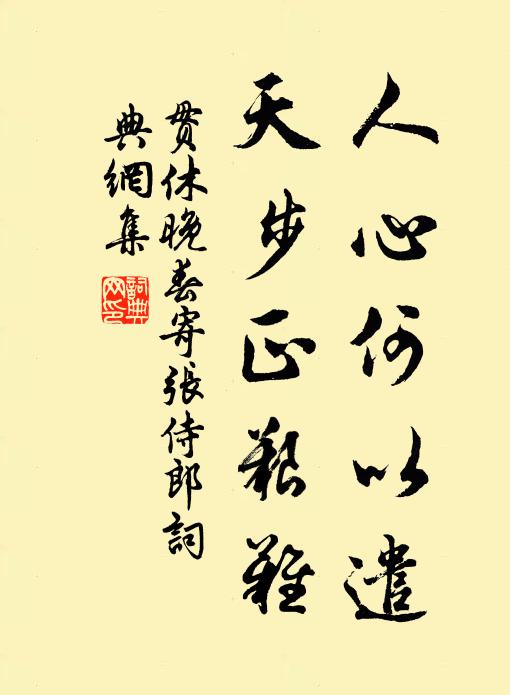 人心何以遣
天步正艱難
貫休晚春寄張侍郎詞
典網集
詞典網印